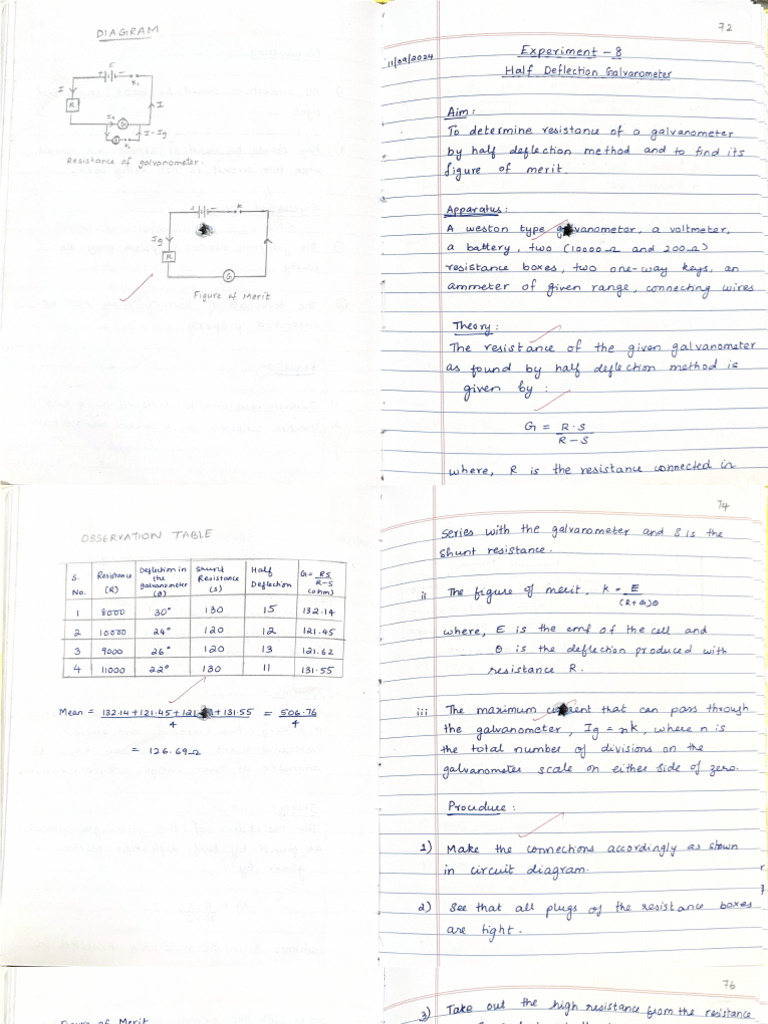 DIAGRAM
E
K₁
I
R
I
Ig
G
I-Ig
S
Resistance of galvanometer.
K
Ig
R
G
Figure of Merit
72
11/09/2024
Experiment - 8
Half Deflection Galvanometer
Aim:
To determine resistance of a galvanometer
by half deflection method and to find its
figure of merit.
Apparatus:
A weston type galvanometer, a voltmeter,
a battery, two (10000Ω and 200Ω)
resistance boxes, two one-way keys, an
ammeter of given range, connecting wires
Theory:
The resistance of the given galvanometer
as found by half deflection method is
given by:
G = R·S
R-S
where, R is the resistance connected in
OBSERVATION TABLE
S. No. Resistance (R) Deflection in the galvanometer (θ) Shunt Resistance (S) Half Deflection G= RS/R-S (ohm)
1 8000 30° 130 15 132.14
2 10000 24° 120 12 121.45
3 9000 26° 120 13 121.62
4 11000 22° 130 11 131.55
Mean = 132.14+121.45+121 +131.55 = 506.76
4 4
= 126.69Ω
74
series with the galvanometer and S is the
shunt resistance.
ii The figure of merit, k = E
(R+G)θ
where, E is the emf of the cell and
θ is the deflection produced with
resistance R.
iii The maximum current that can pass through
the galvanometer, Ig = nk, where n is
the total number of divisions on the
galvanometer scale on either side of zero.
Procedure:
1) Make the connections accordingly as shown
in circuit diagram.
2) See that all plugs of the resistance boxes
are tight.
76
Figure of Merit
3) Take out the high resistance from the resistance